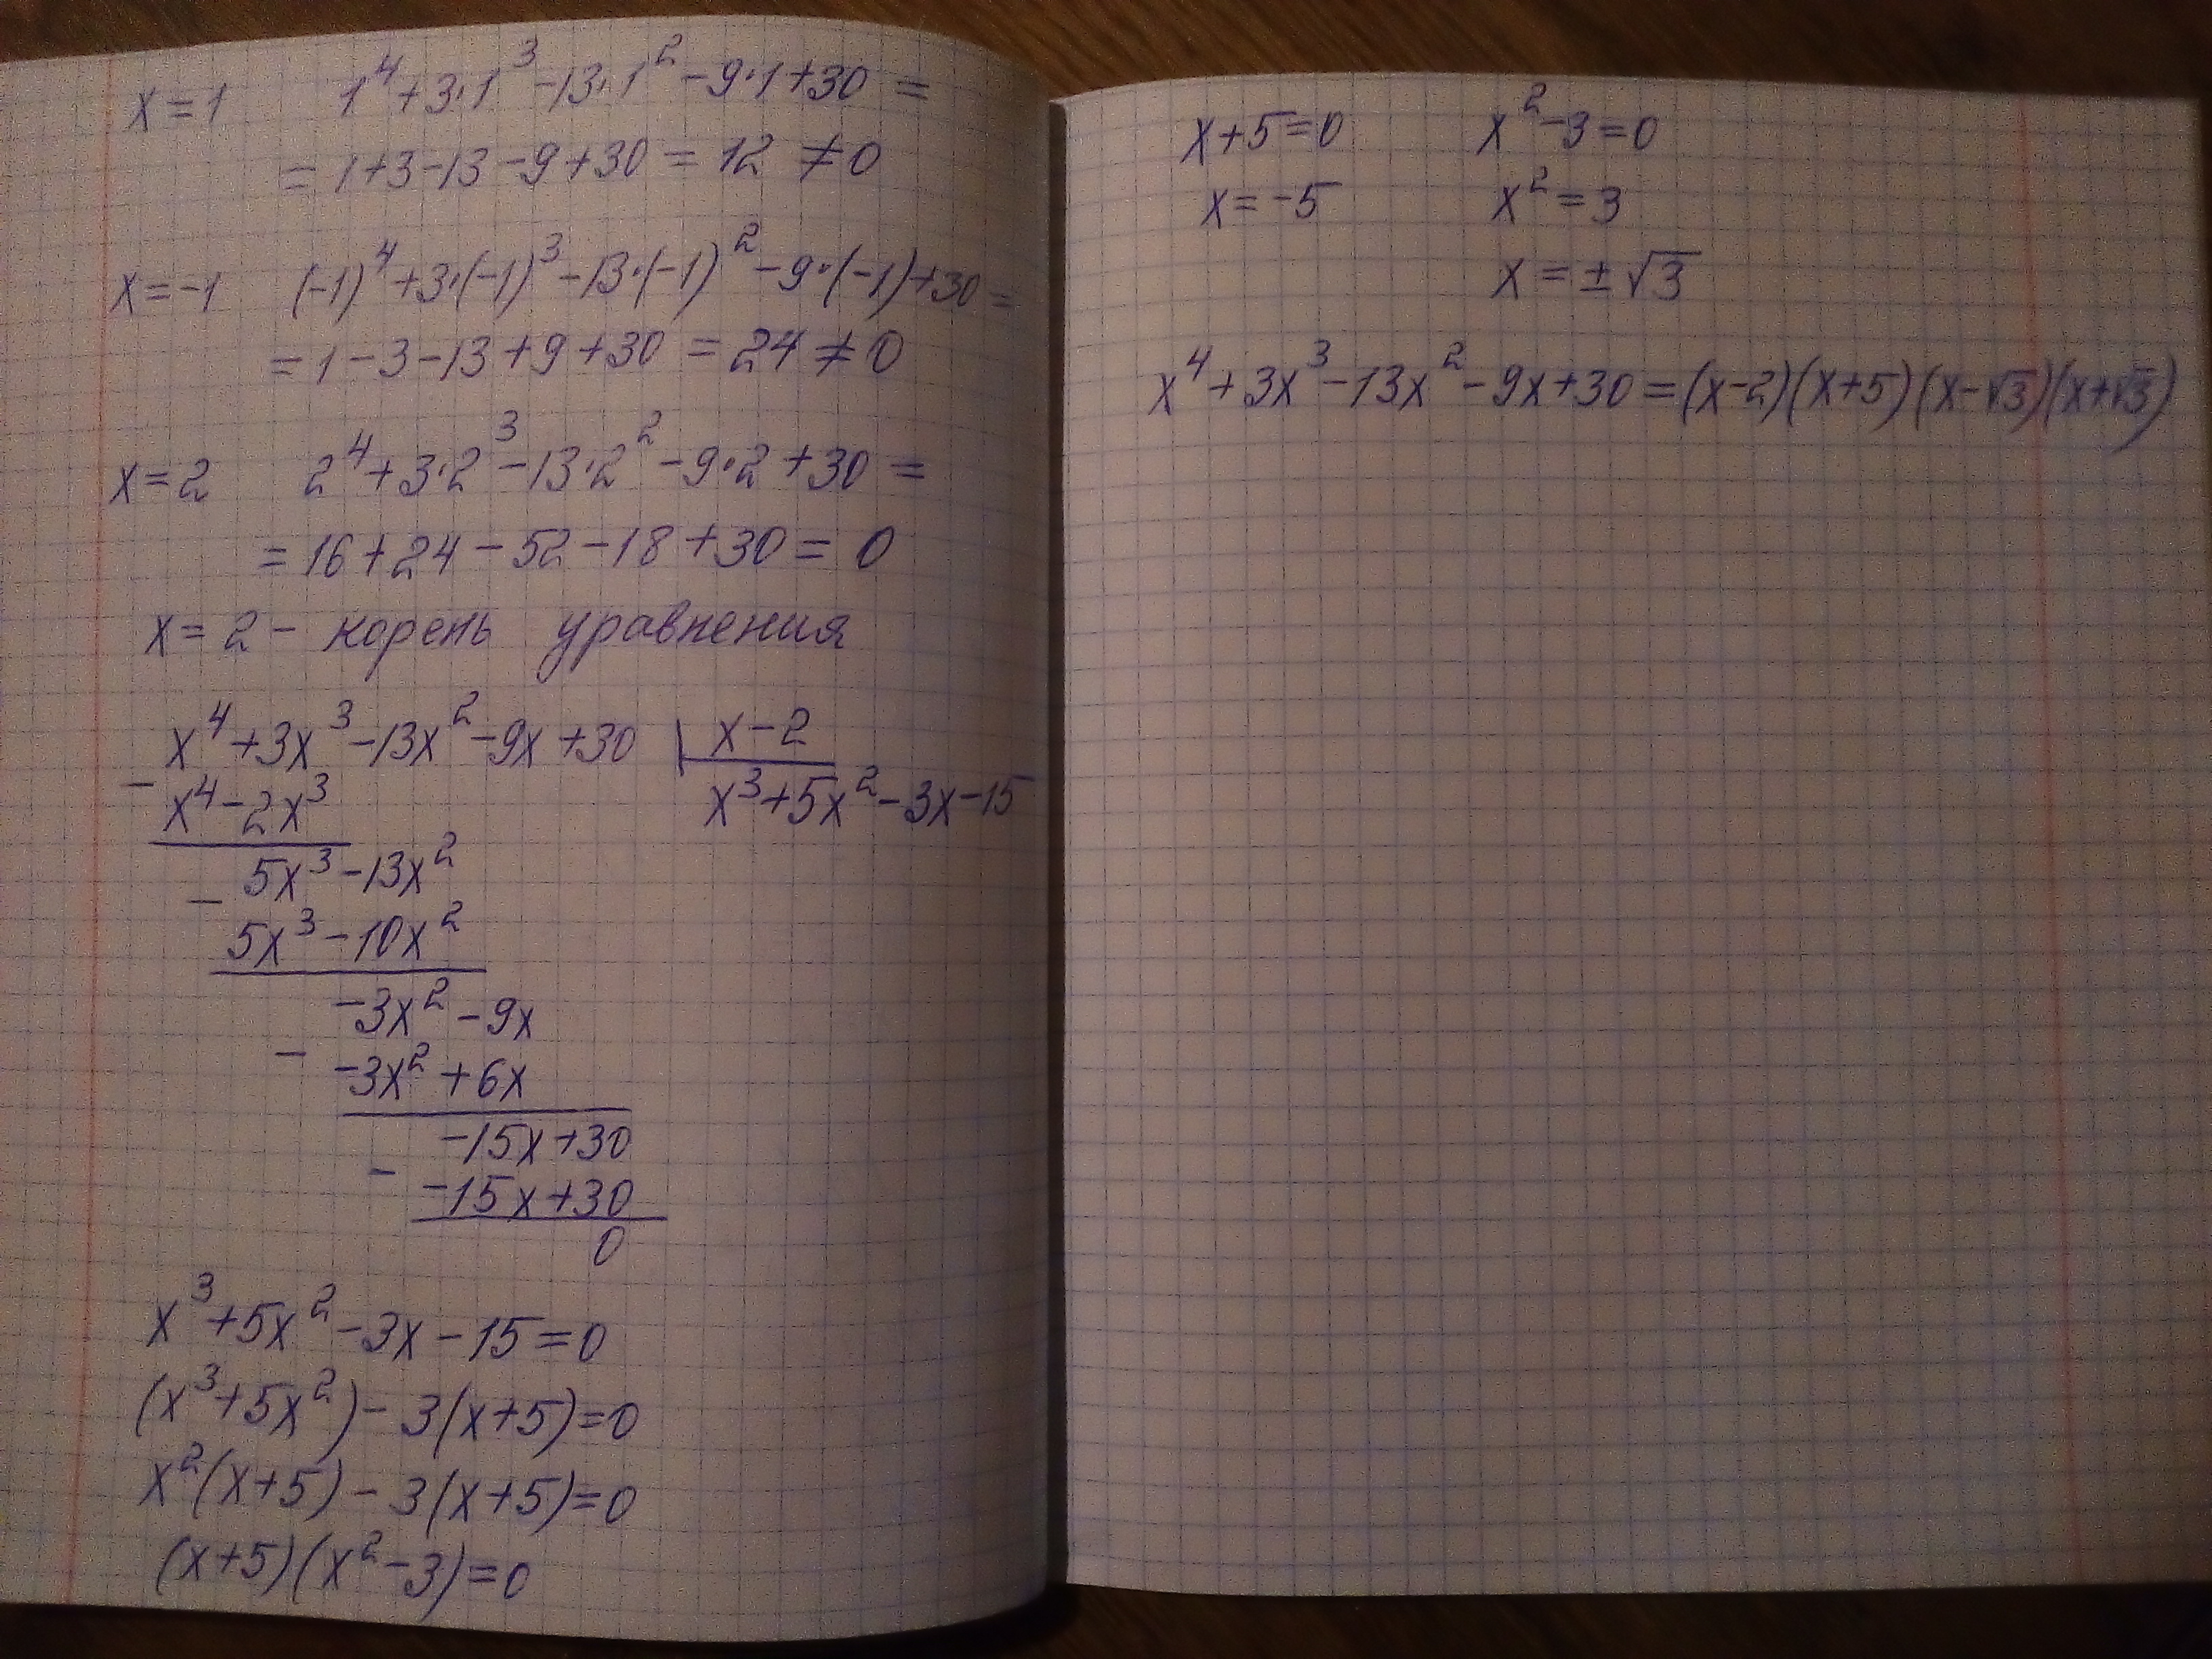 x=1 1⁴+3·1³-13·1²-9·1+30=
=1+3-13-9+30=12≠0
x=-1 (-1)⁴+3·(-1)³-13·(-1)²-9·(-1)+30=
=1-3-13+9+30=24≠0
x=2 2⁴+3·2³-13·2²-9·2+30=
=16+24-52-18+30=0
x=2 - корень уравнения
x⁴+3x³-13x²-9x+30 | x-2
- x⁴-2x³ x³+5x²-3x-15
5x³-13x²
- 5x³-10x²
-3x²-9x
- -3x²+6x
-15x+30
- -15x+30
0
x³+5x²-3x-15=0
(x³+5x²)-3(x+5)=0
x²(x+5)-3(x+5)=0
(x+5)(x²-3)=0
x+5=0 x²-3=0
x=-5 x²=3
x=±√3
x⁴+3x³-13x²-9x+30=(x-2)(x+5)(x-√3)(x+√3)